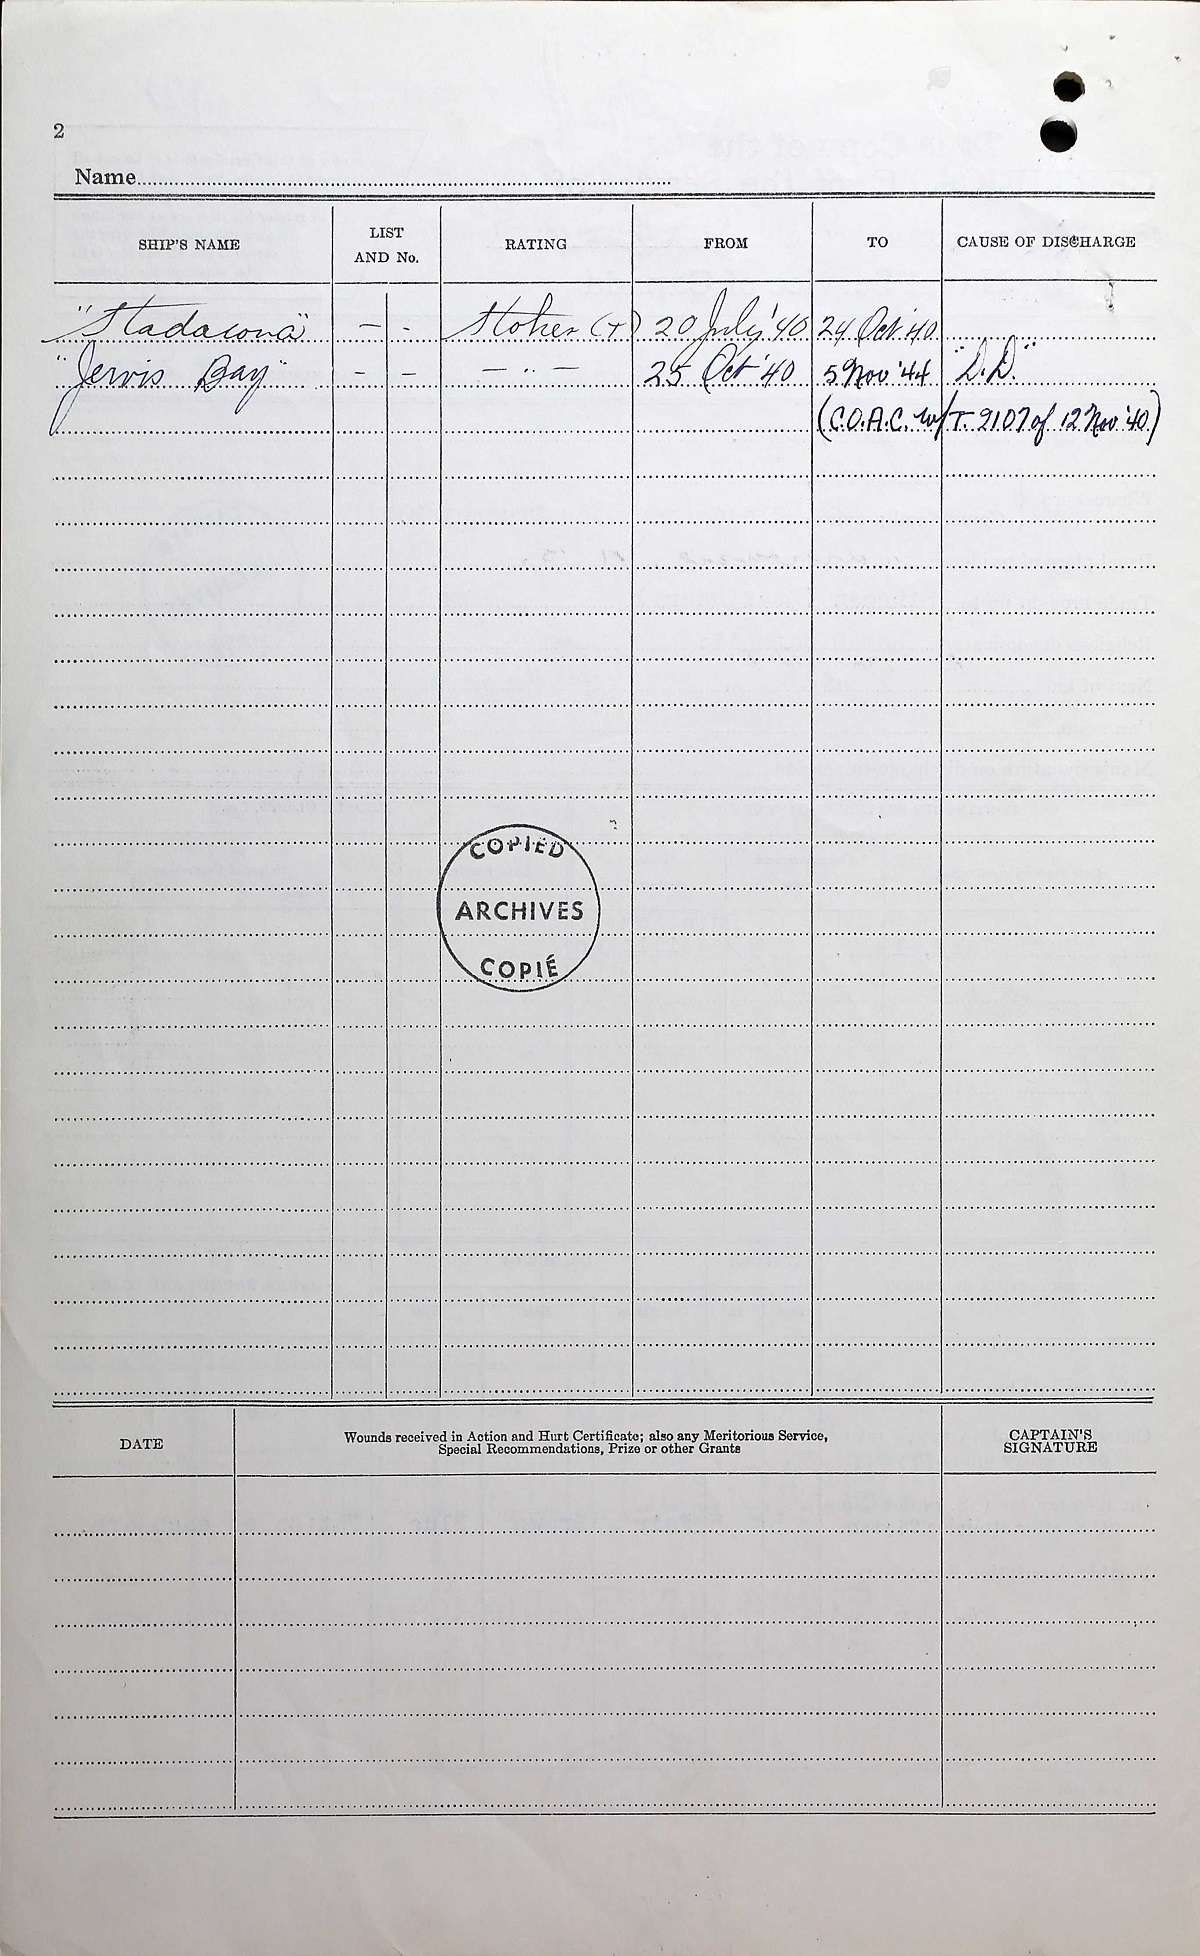 2
Name
SHIP'S NAME LIST AND No. RATING FROM TO CAUSE OF DISCHARGE
"Stadacona" – - Stoker (T) 20 July '40 24 Oct '40
"Jervis Bay" – – – " – 25 Oct '40 5 Nov '44 "D.D."
(C.O.A.C. w/T. 2107 of 12 Nov '40)
COPIED
ARCHIVES
COPIÉ
DATE Wounds received in Action and Hurt Certificate; also any Meritorious Service, Special Recommendations, Prize or other Grants CAPTAIN'S SIGNATURE